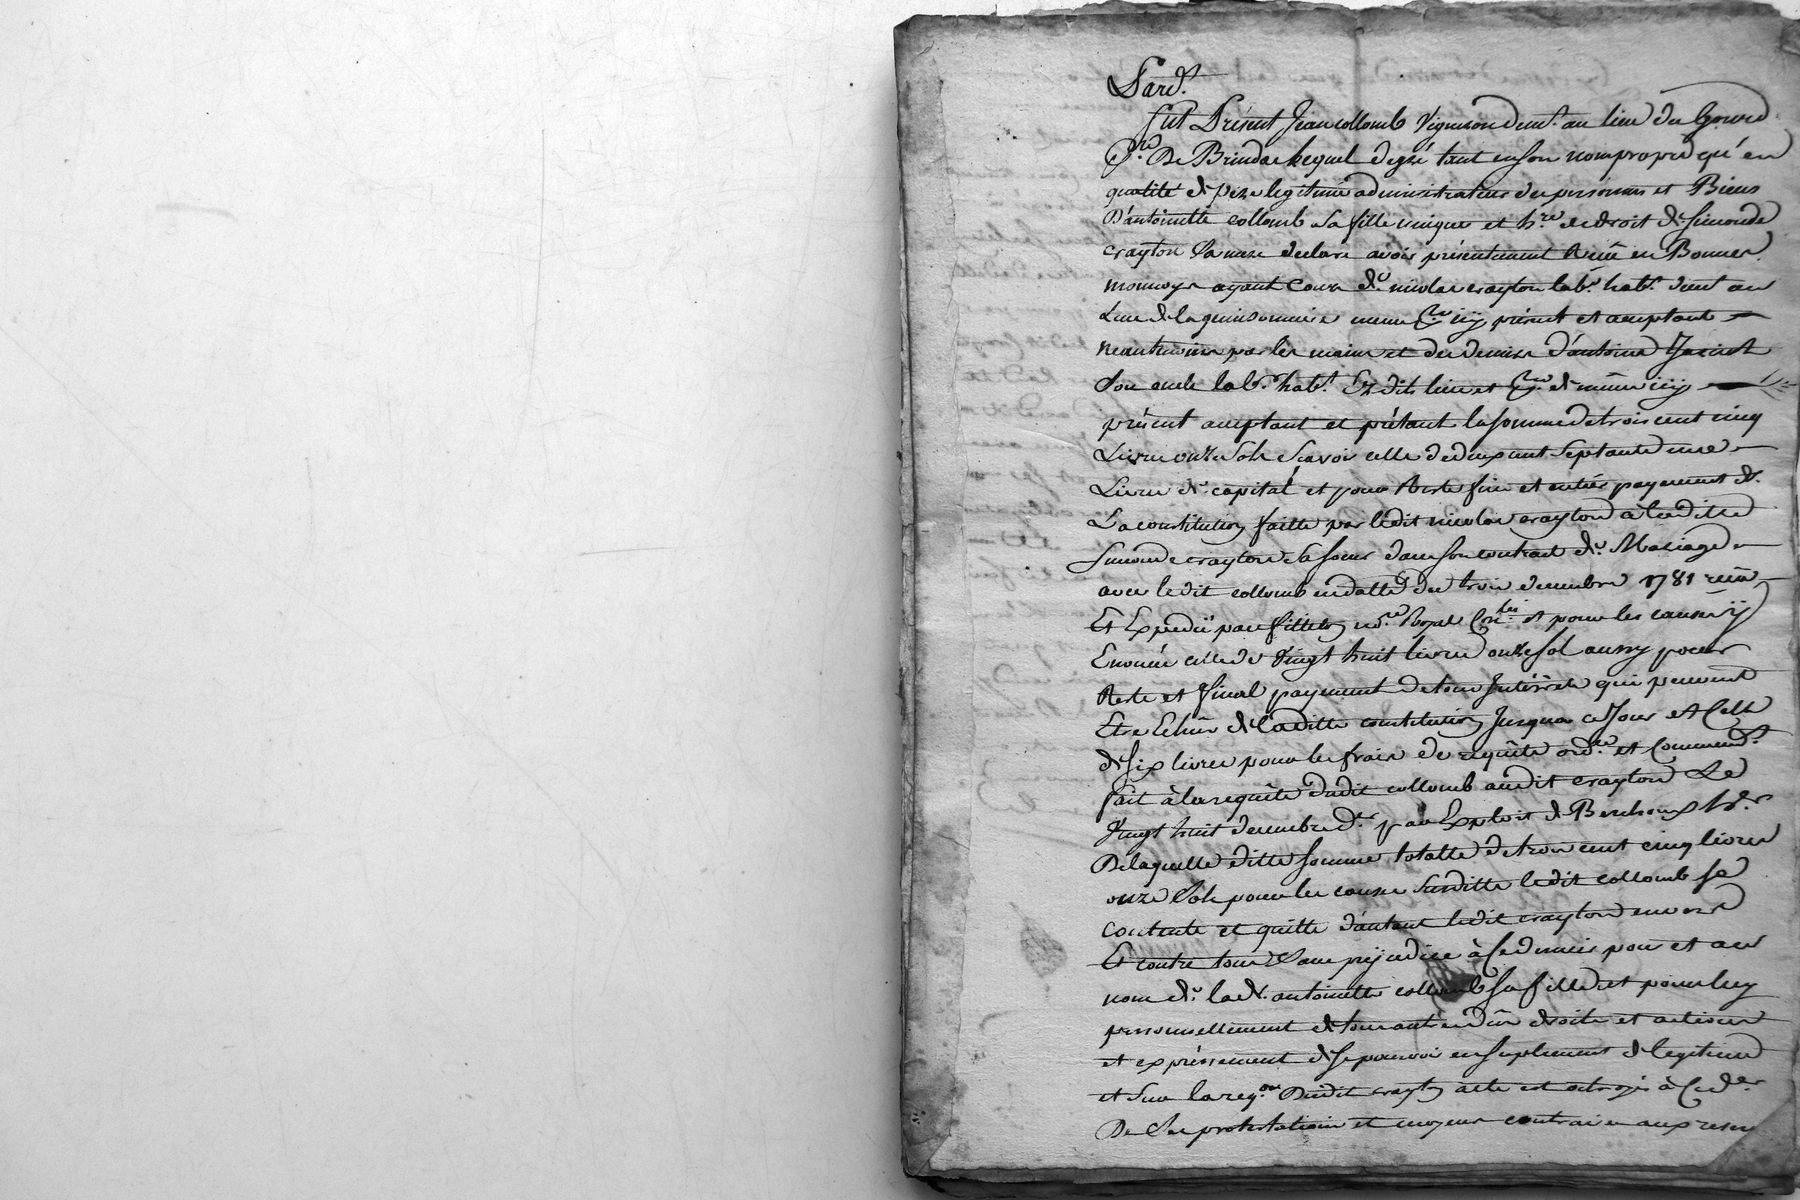 Pard.t
fut Présent Jean collomb Vigneron dem.t au lieu du Gourd
P.sse De Brindas lequel degré tant en son nom propre qu'en
qualité de pere legitime administrateur des personnes et Biens
D'antoinette collomb sa fille unique et h.re de droit de Simonde
crayton sa mere declare avoir présentement Reçû en Bonnes
monnoyes ayant Cours de nicolas crayton lab.r hab.t dud au
Lieu de la quinsonniere meme P.sse icy présent et acceptant
neantmoins par les mains et des deniers d'antoine
Son oncle lab.r hab.t Es dits lieu et P.sse de même icy
présent acceptant et prétant la somme de trois cent cinq
Livres onze Sols Scavoir celle de deux cent Septante une
Livres de capital et pour Reste fin et entier payement de
La constitution faitte par ledit nicolas crayton à laditte
Simonde crayton sa soeur dans son contract de Mariage
avec ledit collomb en datte du trois decembre 1781 reçu
Et Expedié par fillion no.re Royal et pour les causes y
Enoncées celle de Vingt huit livres onze sol aussy pour
Reste et final payement de tous Intérêts qui peuvent
Etre Echûs de laditte constitution Jusqua ce Jour et Celle
de six livres pour les frais de requête ord.ce et Commend.t
fait à la requête dudit collomb audit crayton Le
Vingt huit decembre d.er par Exploit de Berchoux h.er
De laquelle ditte somme totalle de trois cent cinq livres
onze Sols pour les causes Susditte ledit collomb se
contente et quitte d'autant ledit crayton envers
Et contre tous Sans prejudice à Ce dernier pour et au
nom de lad. antoinette collomb sa fille et pour luy
personnellement de tous autres dûs droits et actions
et expressement de se pourvoir en suplement de legitime
et Sur la req.on Dudit crayton acte est octroyé à Ce d.er
De Ses protestations et moyens contraires aux reserv